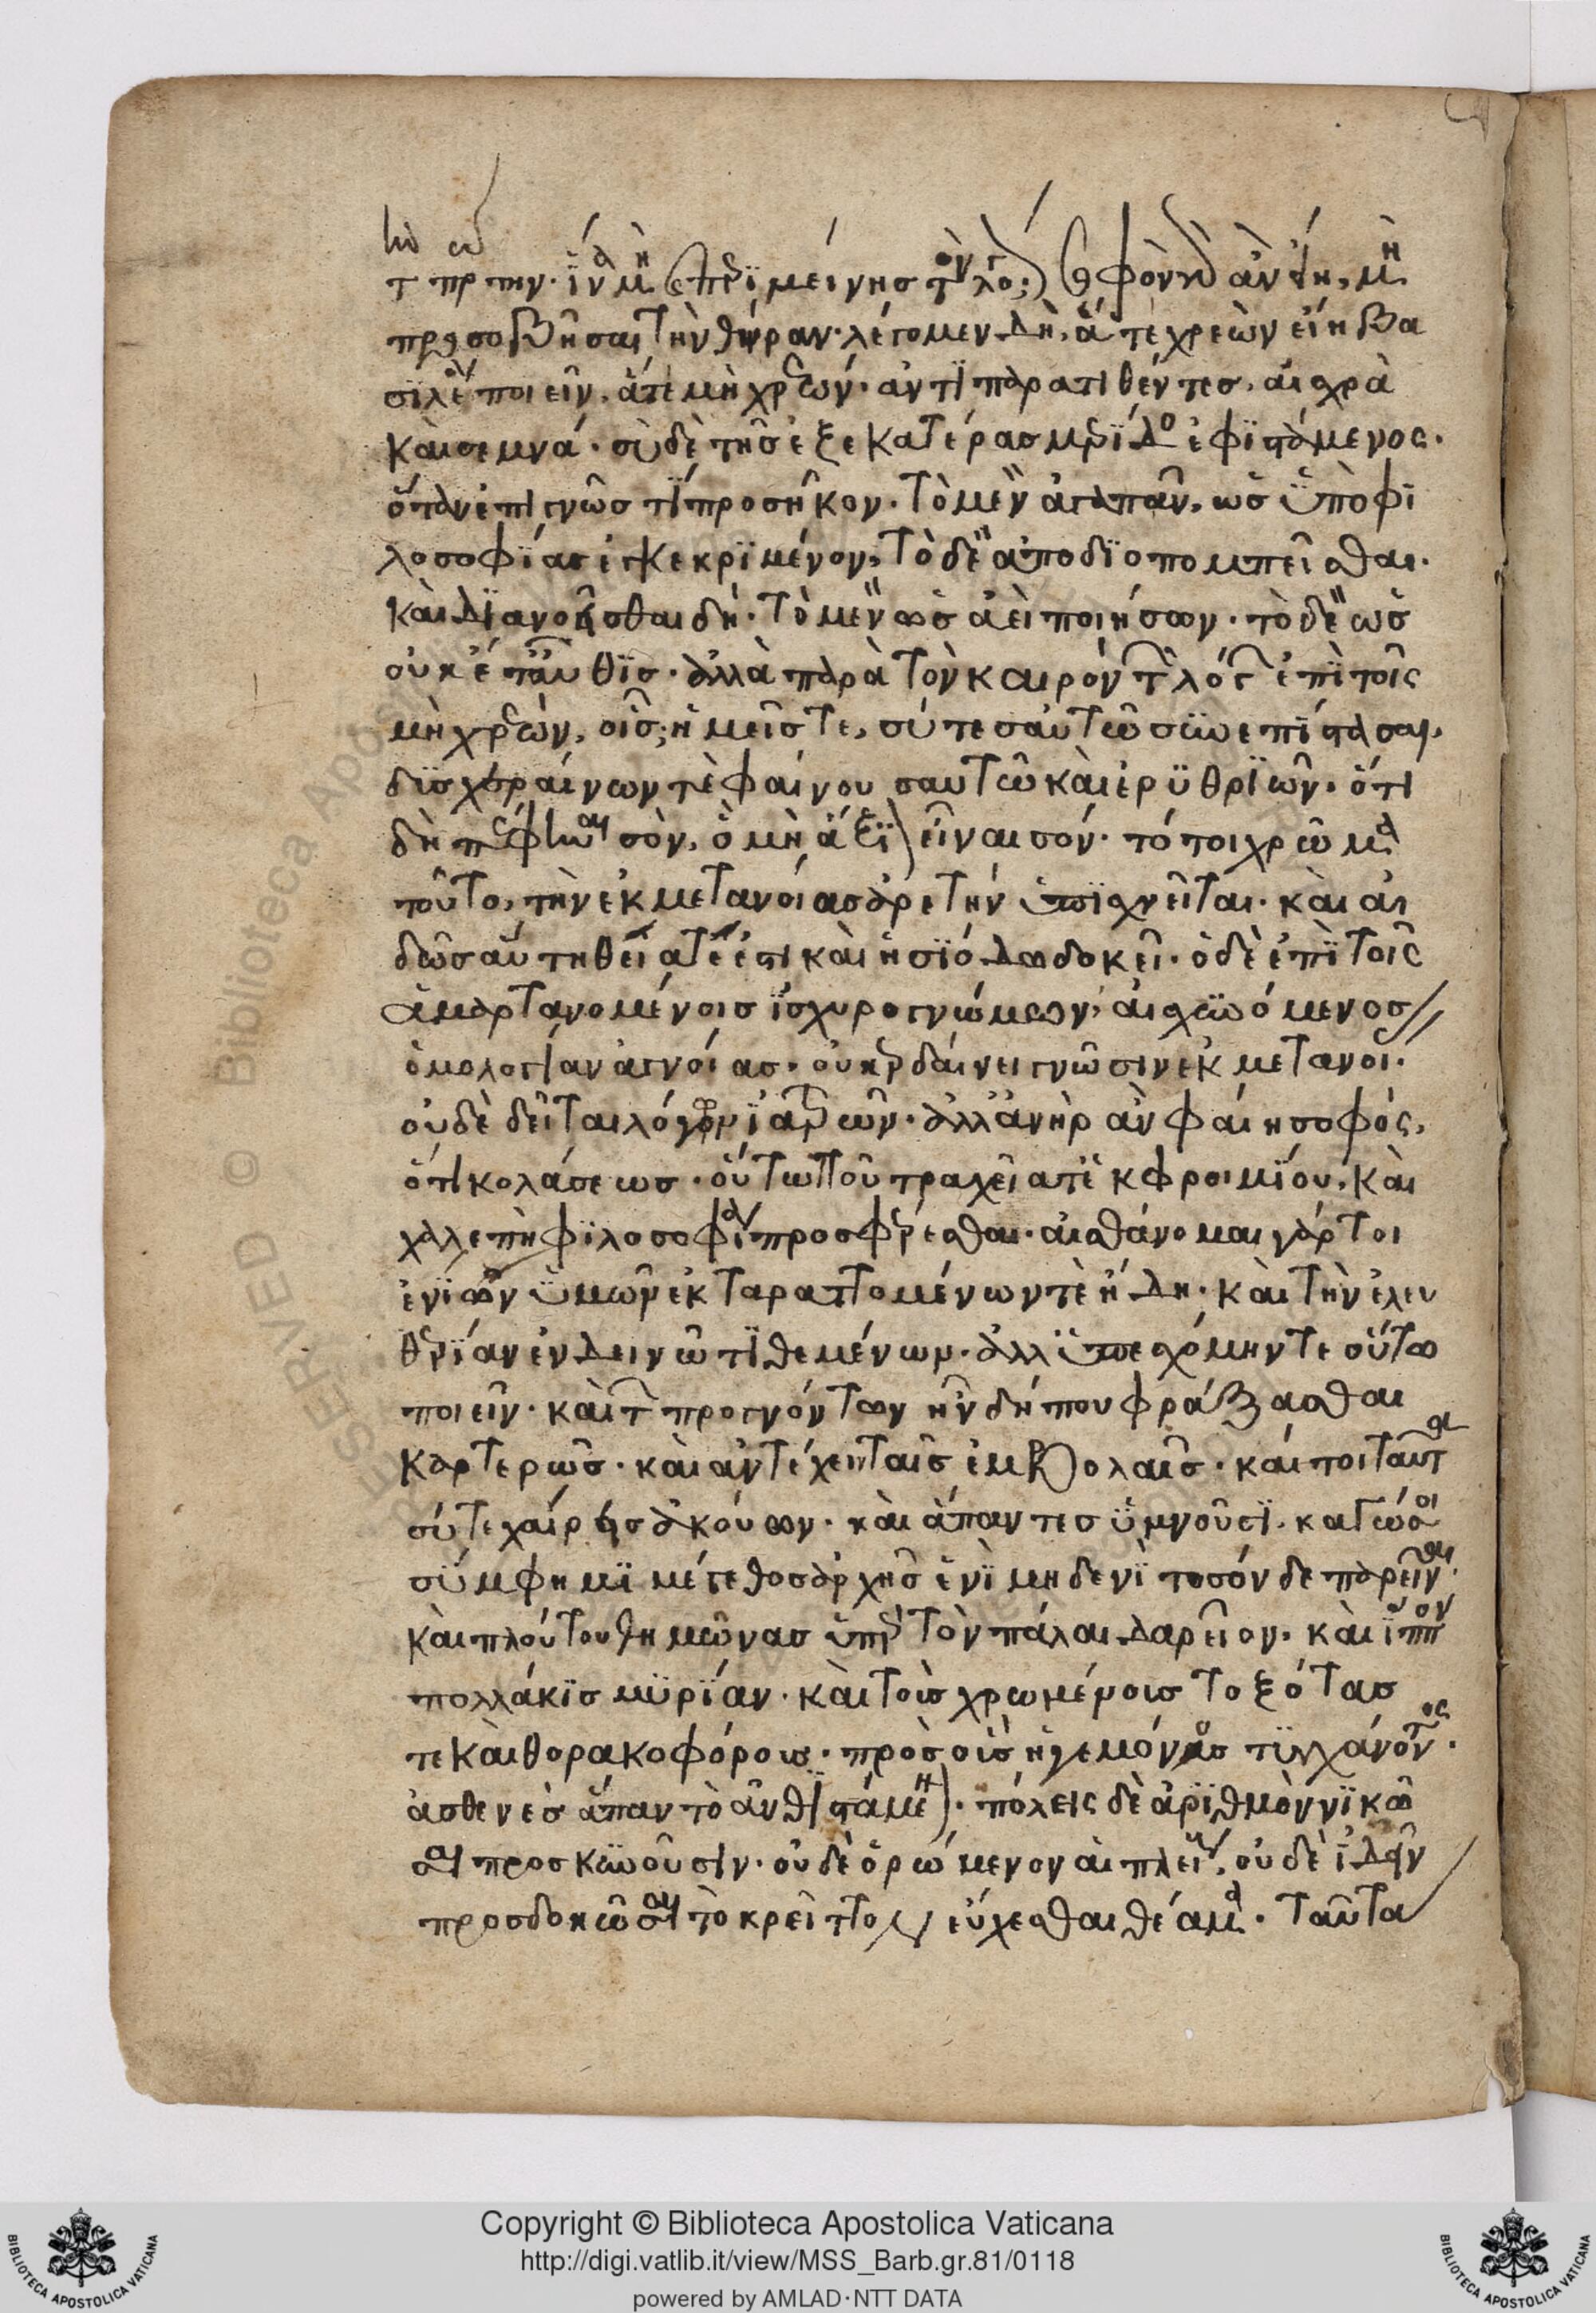 τὴν πρώτην. ἵνα μὴ περιμείνης τὸν λόγον φθονῆ ἂν ἔτι, μὴ
προσοβῆσαι τὴν θήραν· λέγομεν δὴ, ἅ τε χρεὼν εἴη βα
σιλεῖ ποιεῖν, ἅ τε μὴ χρεών· ἀντιπαρατιθέντες, αἰσχρὰ
καὶ σεμνά· σὺ δὲ τῆς ἐξ ἑκατέρας μερίδος ἐφιστάμενος.
ὅταν ἐπιγνῶς τὶ προσῆκον. τὸ μὲν ἀγαπᾶν, ὡς ὑπὸ φι
λοσοφίας ἐγκεκριμένον, τὸ δὲ ἀποδιοπομπεῖσθαι.
καὶ διανοεῖσθαι δή. τὸ μὲν ὡς ἀεὶ ποιήσων. τὸ δὲ ὡς
οὐκέτ' αὖθις. ἀλλὰ παρὰ τὸν καιρὸν τοῦ λόγου ἐπὶ τοῖς
μὴ χρεών, οἷς ἡμεῖς τε, σύ τε σαυτῶ συνεπίστασαι,
δυσχεραίνων τὲ φαίνου σαυτῶ καὶ ἐρυθριῶν. ὅτι
δὴ πέφηνε σὸν, ὃ μὴ ἄξιον εἶναι σόν. τό τοι χρῶμα
τοῦτο, τὴν ἐκ μετανοίας ἀρετὴν ὑπισχνεῖται. καὶ αἰ
δὼς αὕτη θεία τέ ἐστι καὶ ἡσιόδω δοκεῖ. ὁ δὲ ἐπὶ τοῖς
ἁμαρτανομένοις ἰσχυρογνώμων, αἰσχυνόμενος
ὁμολογίαν ἀγνοίας. οὐ κερδαίνει γνῶσιν ἐκ μετανοί.
οὐδὲ δεῖται λόγων ἰατρῶν. ἀλλ' ἀνὴρ ἂν φαίη σοφὸς,
ὅτι κολάσεως. οὕτω που τραχεῖα τὲ ἐκ φροιμίου, καὶ
χαλεπὴ φιλοσοφία προσφέρεσθαι. αἰσθάνομαι γάρ τοι
ἐνίων ὑμῶν ἐκταραττομένων τὲ ἤδη. καὶ τὴν ἐλευ
θερίαν ἐν δεινῶ τιθεμένων. ἀλλ' ὑπεσχόμην τε οὕτω
ποιεῖν. καὶ τῶν προγνόντων ἦν δήπου φράξασθαι
καρτερῶς. καὶ ἀντέχειν ταῖς ἐμβολαῖς. καίτοι ταῦτα
σύ τε χαίρεις ἀκούων. καὶ ἅπαντες ὑμνοῦσι. κἀγώ σοι
σύμφημι μέγεθος ἀρχῆς ἑνὶ μηδενὶ τοσόνδε παρεῖναι.
καὶ πλούτου θημῶνας ὑπὲρ τὸν πάλαι δαρεῖον. καὶ ἵππον
πολλάκις μυρίαν. καὶ τοῖς χρωμένοις τοξότας
τε καὶ θορακοφόρους. πρὸς οὓς ἡγεμόνος τυγχάνοντος.
ἀσθενὲς ἅπαν τὸ ἀνθιστάμενον. πόλεις δὲ ἀριθμὸν νικῶ
σαι προσκυνοῦσιν. οὐδὲ ὁρώμενον αἱ πλείους, οὐδὲ ἰδεῖν
προσδοκῶσαι τὸ κρεῖττον εὔχεσθαι θέαμα. ταῦτα
Copyright © Biblioteca Apostolica Vaticana
http://digi.vatlib.it/view/MSS_Barb.gr.81/0118
powered by AMLAD·NTT DATA